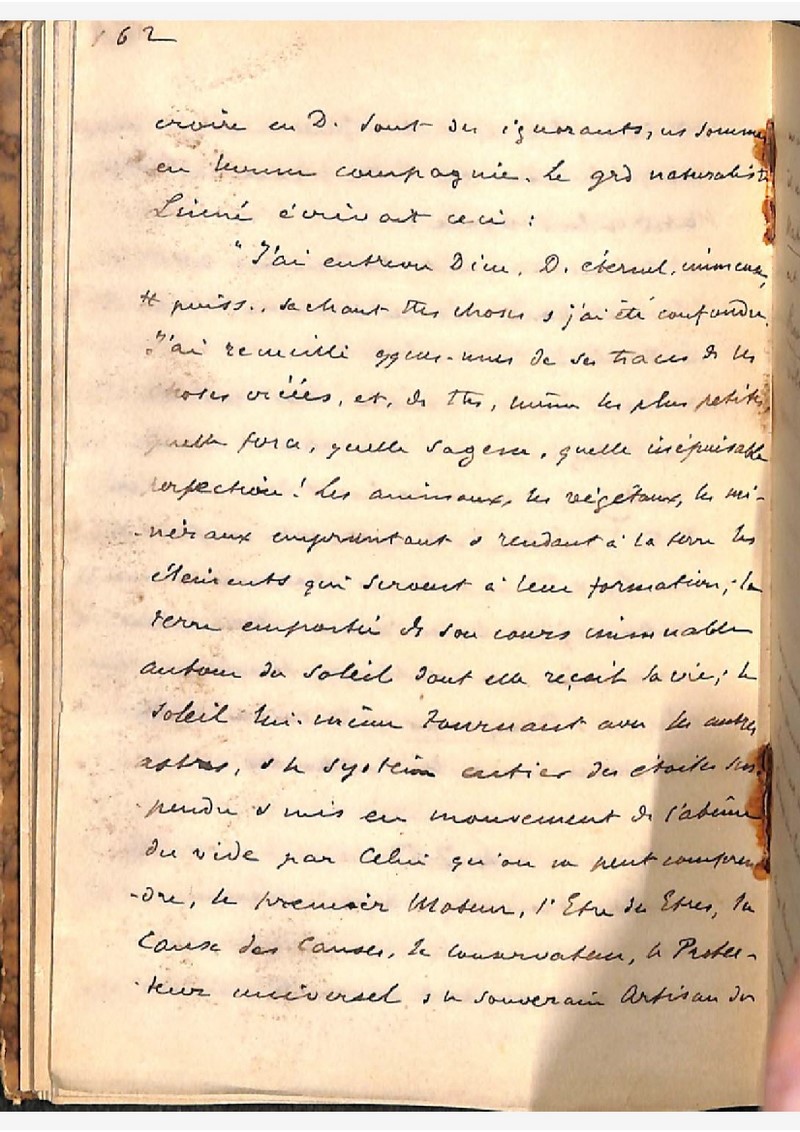 162
croire en D. sont des ignorants, ns sommes
en bonne compagnie. Le grd naturaliste
Linné écrivait ceci :
"J'ai entrevu Dieu, D. éternel, immense,
tt puiss., sachant ttes choses & j'ai été confondu.
J'ai recueilli qques-unes de ses traces ds les
choses créées, et, ds ttes, même les plus petites,
quelle force, quelle sagesse, quelle inépuisable
perfection! Les animaux, les végétaux, les mi-
-néraux empruntant & rendant à la terre les
éléments qui servent à leur formation; la
terre emportée ds son cours immuable
autour du soleil dont elle reçoit la vie; le
soleil lui-même tournant avec les autres
astres, & le système entier des étoiles sus-
pendu & mis en mouvement ds l'abîme
du vide par Celui qu'on ne peut compren-
-dre, le premier Moteur, l'Etre des Etres, la
Cause des Causes, le Conservateur, le Protec-
-teur universel & le souverain Artisan du